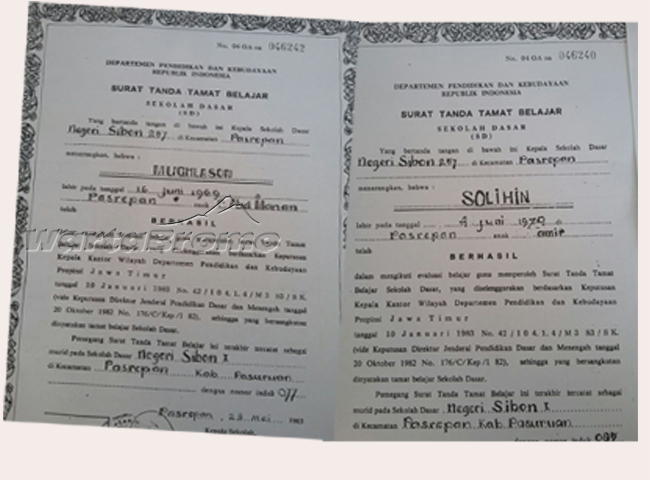 No. 04 OA oa 046242
DEPARTEMEN PENDIDIKAN DAN KEBUDAYAAN
REPUBLIK INDONESIA
SURAT TANDA TAMAT BELAJAR
SEKOLAH DASAR
(SD)
Yang bertanda tangan di bawah ini Kepala Sekolah Dasar
Negeri Sibon 287 di Kecamatan Pasrepan
menerangkan, bahwa :
MUGHLASON
lahir pada tanggal 16 juni 1969
Pasrepan anak
telah
BERHASIL
WartaBromo
Kepala Kantor Wilayah Departemen Pendidikan dan Kebudayaan
Propinsi Jawa Timur
tanggal 10 Januari 1983 No. 42 / I 04. 1. 4 / M 3 83 / SK.
(vide Keputusan Direktur Jenderal Pendidikan Dasar dan Menengah tanggal
20 Oktober 1982 No. 176/C/Kep/I 82), sehingga yang bersangkutan
dinyatakan tamat belajar Sekolah Dasar.
Pemegang Surat Tanda Tamat Belajar ini terakhir tercatat sebagai
murid pada Sekolah Dasar Negeri Sibon I
di Kecamatan Pasrepan Kab. Pasuruan
dengan nomor induk 077
Pasrepan, 23 Mei 1983
Kepala Sekolah,
No. 04 OA oa 046240
DEPARTEMEN PENDIDIKAN DAN KEBUDAYAAN
REPUBLIK INDONESIA
SURAT TANDA TAMAT BELAJAR
SEKOLAH DASAR
(SD)
Yang bertanda tangan di bawah ini Kepala Sekolah Dasar
Negeri Sibon 287 di Kecamatan Pasrepan
menerangkan, bahwa :
SOLIHIN
lahir pada tanggal 4 juni 1970
Pasrepan anak amir
telah
BERHASIL
dalam mengikuti evaluasi belajar guna memperoleh Surat Tanda Tamat
Belajar Sekolah Dasar, yang diselenggarakan berdasarkan Keputusan
Kepala Kantor Wilayah Departemen Pendidikan dan Kebudayaan
Propinsi Jawa Timur
tanggal 10 Januari 1983 No. 42 / I 04. 1. 4 / M 3 83 / SK.
(vide Keputusan Direktur Jenderal Pendidikan Dasar dan Menengah tanggal
20 Oktober 1982 No. 176/C/Kep/I 82), sehingga yang bersangkutan
dinyatakan tamat belajar Sekolah Dasar.
Pemegang Surat Tanda Tamat Belajar ini terakhir tercatat sebagai
murid pada Sekolah Dasar Negeri Sibon I
di Kecamatan Pasrepan Kab. Pasuruan
dengan nomor induk